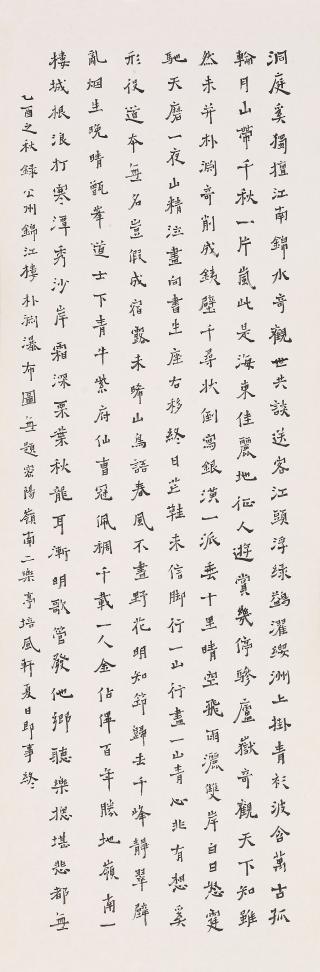 洞庭奚獨擅江南錦水奇觀世共談送客江頭浮綠鷁濯纓洲上掛青衫波含萬古孤
輪月山帶千秋一片嵐此是海東佳麗地征人遊賞幾停驂廬嶽奇觀天下知雖
然未并朴淵奇削成鐵壁千尋狀倒寫銀潢一派垂十里晴空飛雨灑雙岸白日怒霆
馳天磨一夜山精泣畫向書生座右移終日芒鞋未信脚行一山行盡一山青心非有想奚
形役道本無名豈假成宿露未晞山鳥語春風不盡野花明知筇歸去千峰靜翠壁
亂烟生晩晴甑峯道士下青牛紫府仙曹冠佩稠千載一人金佔俾百年勝地嶺南一
樓城根浪打寒潭秀沙岸霜深栗葉秋龍耳漸明歌管發他鄉聽樂摠堪悲都無
乙酉之秋錄公州錦江樓朴淵瀑布圖無題密陽嶺南二樂亭培風軒夏日即事終